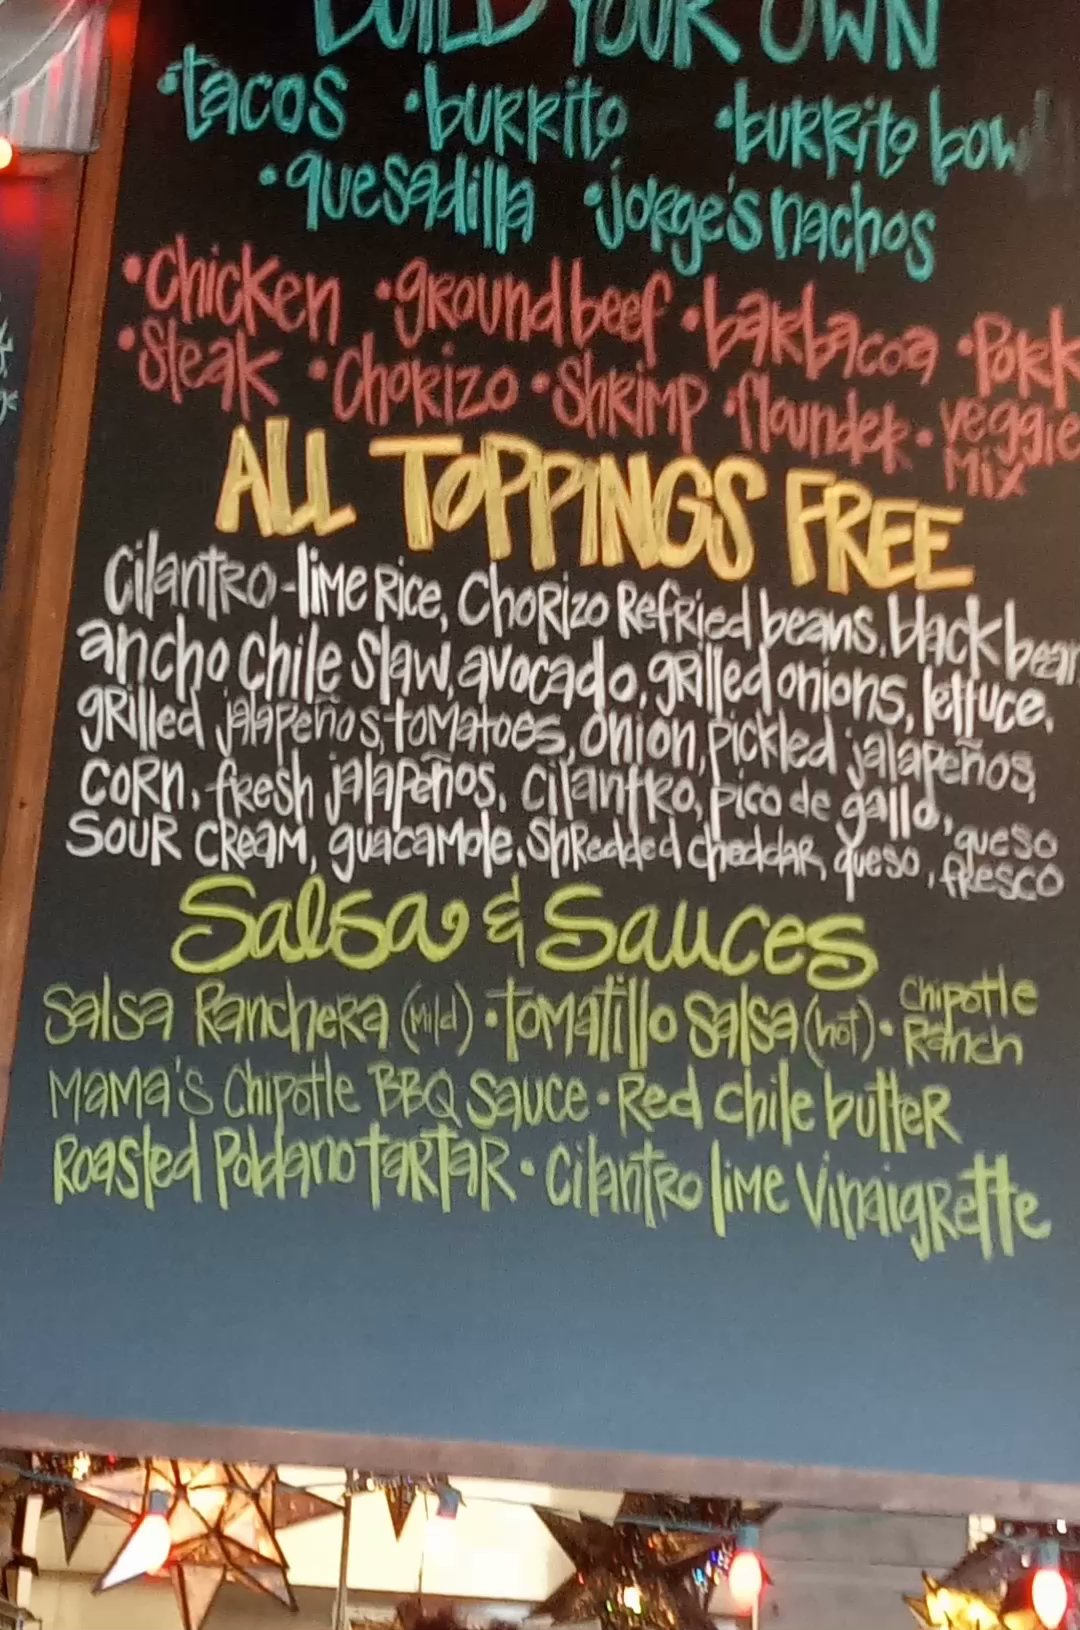 BUILD YOUR OWN
•tacos •burrito •burrito bowl
•quesadilla •jorge's nachos
•Chicken •ground beef •barbacoa •Pork
•Steak •Chorizo •Shrimp •flounder •veggie
Mix
ALL TOPPINGS FREE
Cilantro-lime Rice, Chorizo Refried beans, black bean
ancho chile slaw, avocado, grilled onions, lettuce,
grilled jalapeños, tomatoes, onion, pickled jalapeños,
corn, fresh jalapeños, cilantro, pico de gallo,
sour cream, guacamole, shredded cheddar, queso, queso fresco
Salsa & Sauces
Salsa Ranchera (mild) • tomatillo salsa (hot) • Chipotle Ranch
Mama's Chipotle BBQ Sauce • Red chile butter
Roasted Poblano tartar • Cilantro lime Vinaigrette